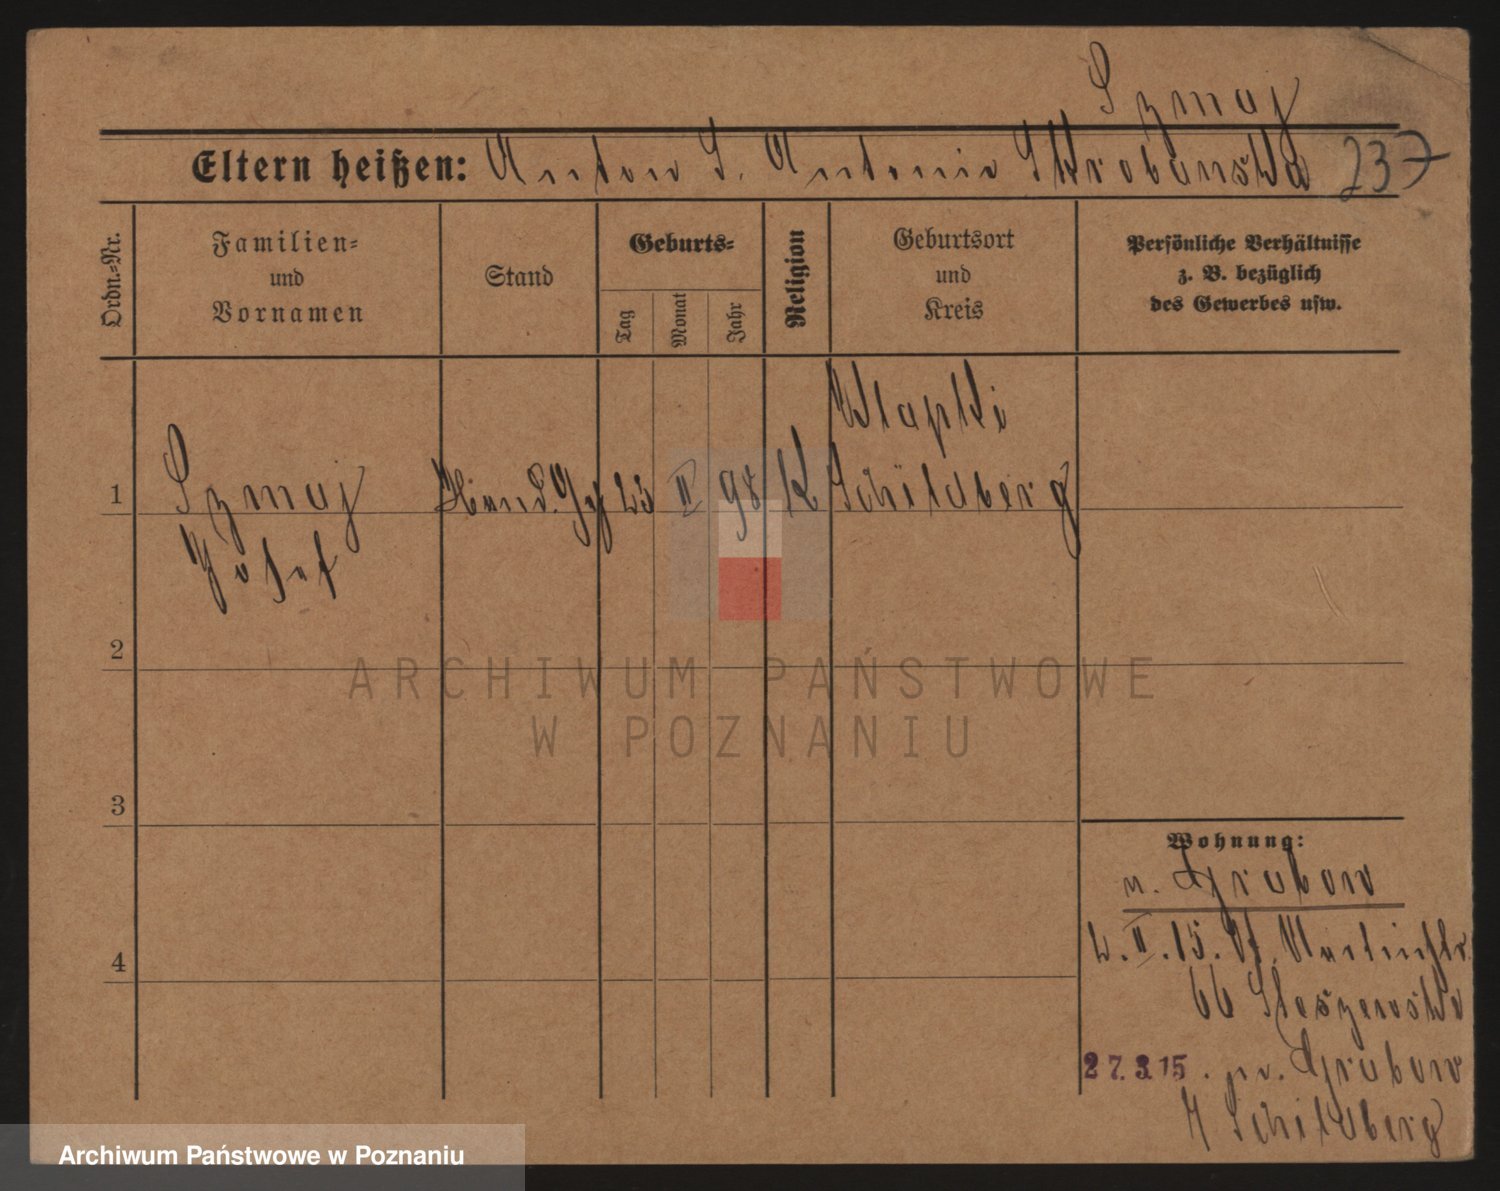 Szmaj
Eltern heißen: Anton S. Antonie Skrobanska 237
Ordn.-Nr.
Familien-
und
Vornamen
Stand
Geburts-
Tag
Monat
Jahr
Religion
Geburtsort
und
Kreis
Persönliche Verhältnisse
z. B. bezüglich
des Gewerbes usw.
1
Szmaj
Josef
Hand. Geh 25 II 98 K
Schildberg
2
3
4
Wohnung:
n. Grabow
II. 15.
66
27.3.15. Grabow
Schildberg
ARCHIWUM PAŃSTWOWE
W POZNANIU
Archiwum Państwowe w Poznaniu